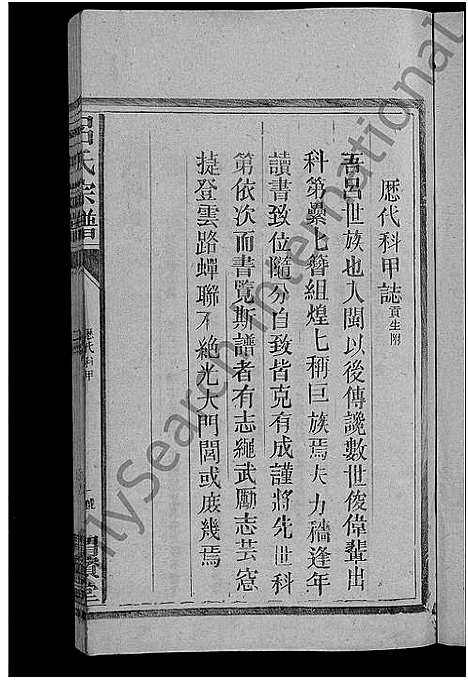 歷代科甲誌貢生附
吾呂世族也入閩以後傳讒數世俊偉輩出
科第纍七簪組煌七稱巨族焉夫力穡逢年
讀書致位隨分自致皆克有成謹將先世科
第依次而書覽斯譜者有志繩武勵志芸窓
捷登雲路蟬聯不絶光大門閭或庶幾焉
呂氏宗譜
歷代科甲
MySearch International